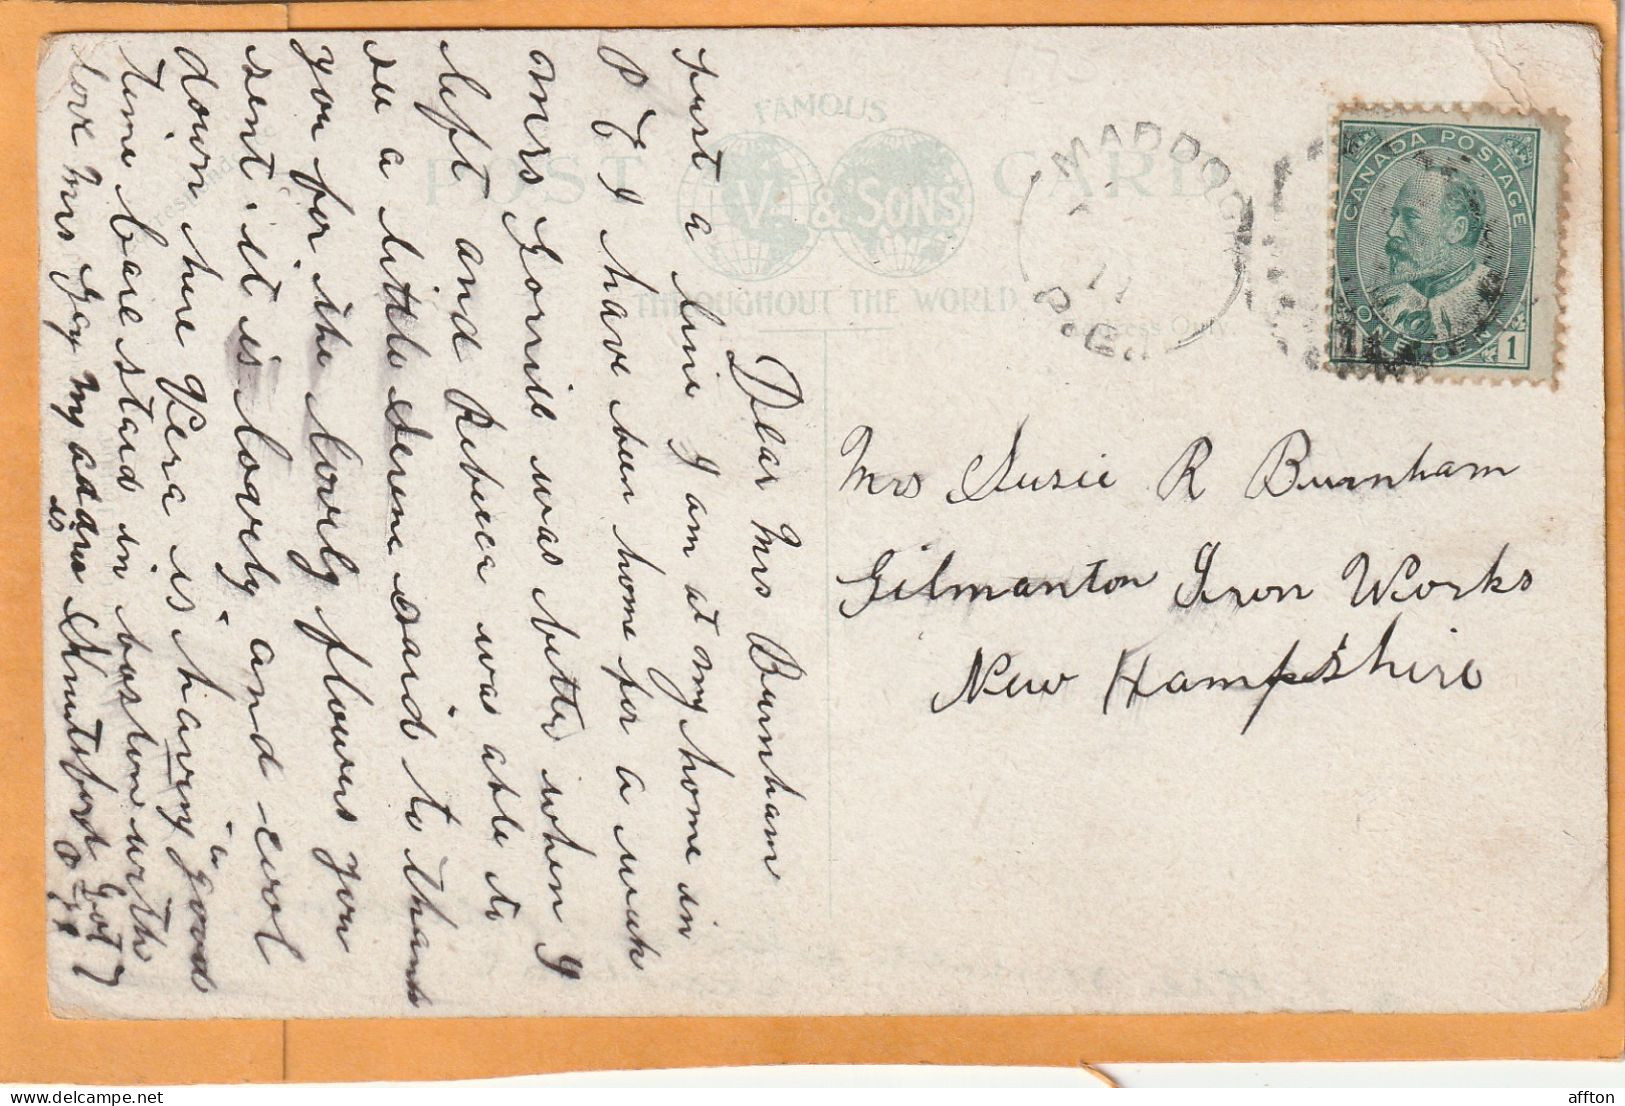 FAMOUS
POST CARD
V & SONS
THROUGHOUT THE WORLD
Address Only.
MADDOCK
11
P.E.I
CANADA POSTAGE
ONE CENT
1
Mrs Susie R Burnham
Gilmanton Iron Works
New Hampshire
Dear Mrs Burnham
just a line I am at my home in
P E I have bun home for a week
Mrs Gorrill was better when I
left and Rebeca was able to
su a little Serene said to thank
you for the lovely flowers you
sent it is loverly and cool
down here Vera is having a good
time bare staid in boston with
love Mrs Gay my address is
Lot 7
affton